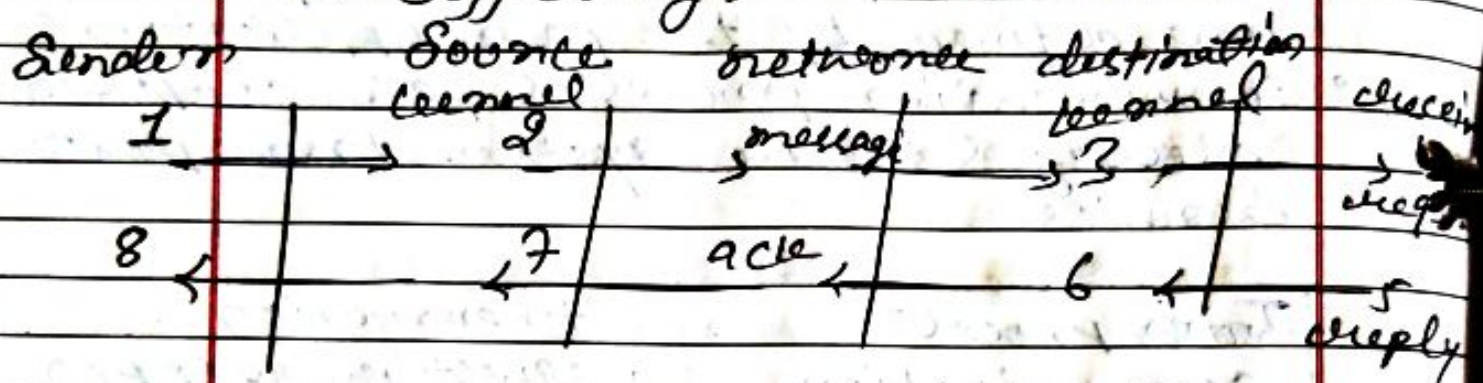 Sender Source network destination
kernel kernel
1 2 message 3
8 7 ack 6 5
reply